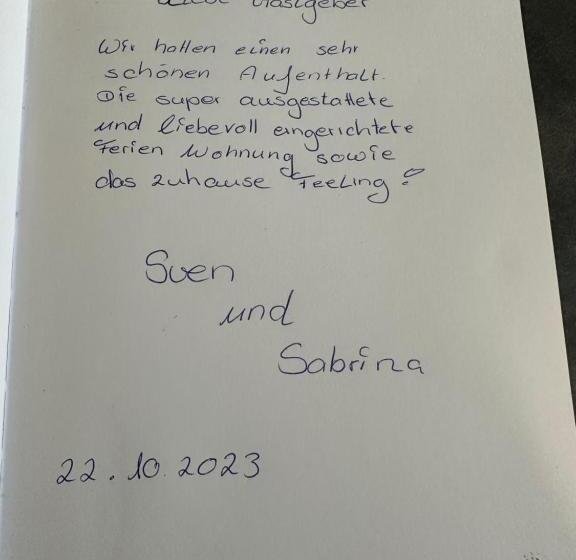 Liebe Gastgeber
Wir hatten einen sehr
schönen Aufenthalt.
Die super ausgestattete
und liebevoll eingerichtete
Ferien Wohnung sowie
das zuhause Feeling!
Sven
und
Sabrina
22.10.2023